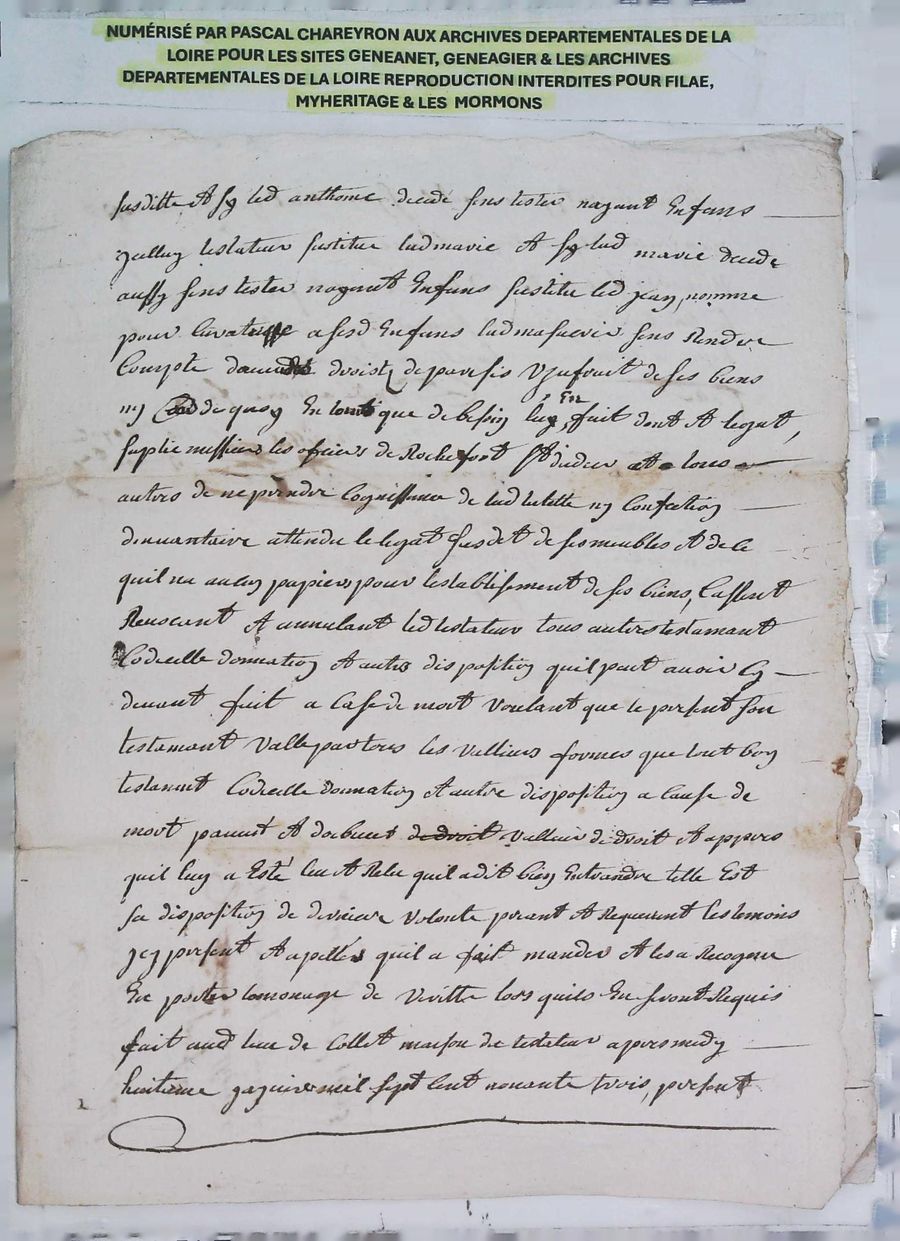 NUMÉRISÉ PAR PASCAL CHAREYRON AUX ARCHIVES DEPARTEMENTALES DE LA
LOIRE POUR LES SITES GENEANET, GENEAGIER & LES ARCHIVES
DEPARTEMENTALES DE LA LOIRE REPRODUCTION INTERDITES POUR FILAE,
MYHERITAGE & LES MORMONS
susditte Et sy led anthoine decede sens tester nayant Enfans
testateur sustitue lad marie Et sy lad marie decede
aussy sens tester nayant Enfans sustitue led jean, nomme
pour a sesd Enfans lad sens Rendre
Compte droist de par usufruit de ses biens
ny de quoy En que de besoin luy En fait dont Et legat,
suplie messieurs les officiers de Rochefort St didier et a tous
autres de ne prendre Cognissance de lad ny Confection
dinvantaire attendu le legat susdt de ses meubles Et de ce
quil na aucun papiers pour lestablissement de ses biens, Cassent
Revocant Et annulant led testateur tous autres testamant
Codicille donnation Et autre disposition quil peut avoir Cy
devant fait a Cause de mort voulant que le present son
testamant valle par toutes les meilleurs formes que tout bon
testamant Codicille donnation Et autre disposition a Cause de
mort peuvent Et doibvent de droit valloir de droit Et appres
quil luy a Esté leu Et Relu quil a dit bien Entrandre telle Est
sa disposition de derniere volonte priant Et Requerent les temoins
jcy present Et apellés quil a fait mander Et les a Recogneu
En porter temoniage de veritte lors quils En seront Requis
fait aud lieu de Collet maison du testateur apres midy
huitieme janvier mil sept cent nonante trois, present